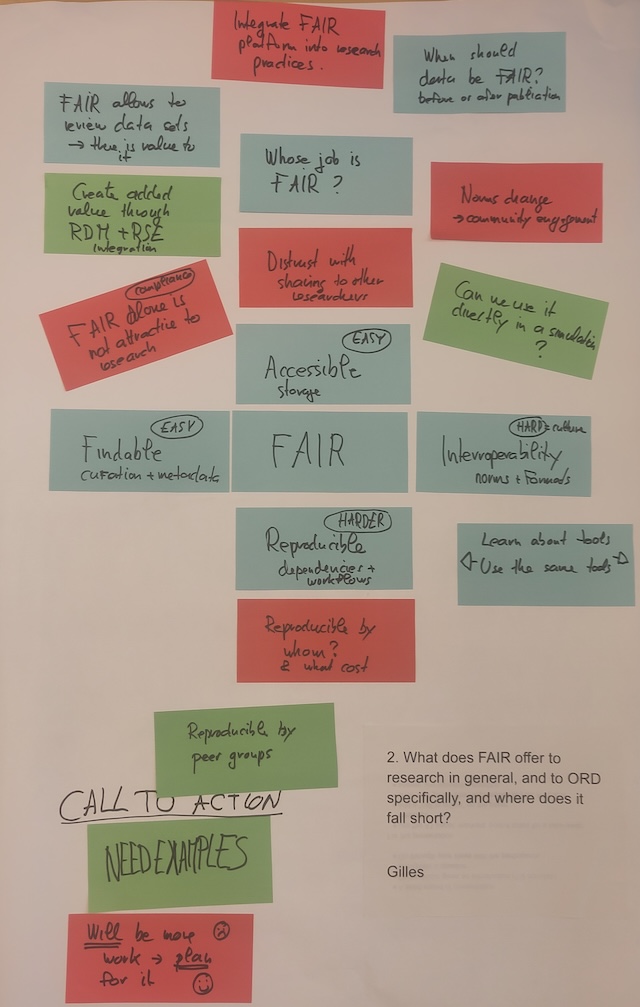 Integrate FAIR
platform into research
practices.
When should
data be FAIR?
before or after publication
FAIR allows to
review data sets
→ there is value to
it
Whose job is
FAIR ?
Create added
value through
RDM + RSE
integration
Norms change
→ community engagement
Distrust with
sharing to other
researchers
compliance
FAIR alone is
not attractive to
research
Can we use it
directly in a simulation
?
EASY
Accessible
storage
EASY
Findable
curation + metadata
FAIR
HARD = culture
Interroperability
norms + Formats
HARDER
Reproducible
dependencies +
workflows
Learn about tools
Use the same tools
Reproducible by
whom?
& what cost
Reproducible by
peer groups
CALL TO ACTION
NEED EXAMPLES
Will be more
work → plan
for it
2. What does FAIR offer to
research in general, and to ORD
specifically, and where does it
fall short?
Gilles